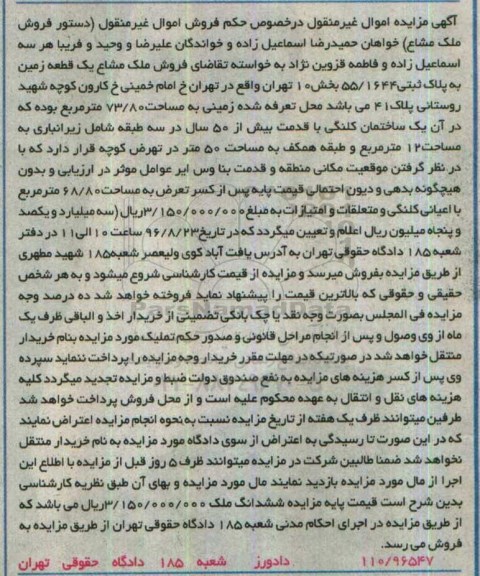 آگهی مزایده اموال غیرمنقول درخصوص حکم فروش اموال غیرمنقول (دستور فروش
ملک مشاع) خواهان حمیدرضا اسماعیل زاده و خواندگان علیرضا و وحید و فریبا هر سه
اسماعیل زاده و فاطمه قزوین نژاد به خواسته تقاضای فروش ملک مشاع یک قطعه زمین
به پلاک ثبتی ۵۵/۱۶۴۴ بخش۱۰ تهران واقع در تهران خ امام خمینی خ کارون کوچه شهید
روستائی پلاک۴۱ می باشد محل تعرفه شده زمینی به مساحت۷۳/۸۰ مترمربع بوده که
در آن یک ساختمان کلنگی با قدمت بیش از ۵۰ سال در سه طبقه شامل زیرانباری به
مساحت۱۲ مترمربع و طبقه همکف به مساحت ۵۰ متر در تهرض کوچه قرار دارد که با
در نظر گرفتن موقعیت مکانی منطقه و قدمت بنا وس ایر عوامل موثر در ارزیابی و بدون
هیچگونه بدهی و دیون احتمالی قیمت پایه پس از کسر تعرض به مساحت۶۸/۸۰ مترمربع
با اعیانی کلنگی و متعلقات و امتیازات به مبلغ۳/۱۵۰/۰۰۰/۰۰۰ریال (سه میلیارد و یکصد
و پنجاه میلیون ریال اعلام و تعیین میگردد که در تاریخ۹۶/۸/۲۳ ساعت۱۰ الی۱۱ در دفتر
شعبه۱۸۵ دادگاه حقوقی تهران به آدرس یافت آباد کوی ولیعصر شعبه۱۸۵ شهید مطهری
از طریق مزایده بفروش میرسد و مزایده از قیمت کارشناسی شروع میشود و به هر شخص
حقیقی و حقوقی که بالاترین قیمت را پیشنهاد نماید فروخته خواهد شد ده درصد وجه
مزایده فی المجلس بصورت وجه نقد یا چک بانکی تضمینی از خریدار اخذ و الباقی ظرف یک
ماه از وی وصول و پس از انجام مراحل قانونی و صدور حکم تملیک مورد مزایده بنام خریدار
منتقل خواهد شد در صورتیکه در مهلت مقرر خریدار وجه مزایده را پرداخت ننماید سپرده
وی پس از کسر هزینه های مزایده به نفع صندوق دولت ضبط و مزایده تجدید میگردد کلیه
هزینه های نقل و انتقال به عهده محکوم علیه است و از محل فروش پرداخت خواهد شد
طرفین میتوانند ظرف یک هفته از تاریخ مزایده نسبت به نحوه انجام مزایده اعتراض نمایند
که در این صورت تا رسیدگی به اعتراض از سوی دادگاه مورد مزایده به نام خریدار منتقل
نخواهد شد ضمنا طالبین شرکت در مزایده میتوانند ظرف ۵ روز قبل از مزایده با اطلاع این
اجرا از مال مورد مزایده بازدید نمایند مال مورد مزایده و بهای آن طبق نظریه کارشناسی
بدین شرح است قیمت پایه مزایده ششدانگ ملک ۳/۱۵۰/۰۰۰/۰۰۰ریال می باشد که
از طریق مزایده در اجرای احکام مدنی شعبه ۱۸۵ دادگاه حقوقی تهران از طریق مزایده به
فروش می رسد.
۱۱۰/۹۶۵۴۷ دادورز شعبه ۱۸۵ دادگاه حقوقی تهران